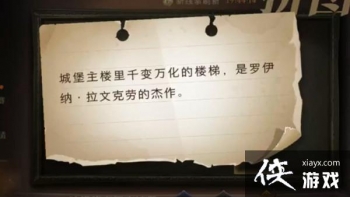 城堡主楼里千变万化的楼梯，是罗伊
纳·拉文克劳的杰作。
侠游戏
xiayx.com